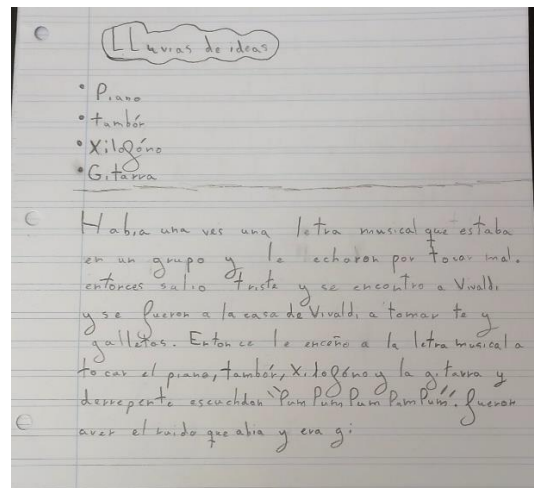 LLuvias de ideas
Piano
tambór
Xilofóno
Gitarra
Habia una ves una letra musical que estaba
en un grupo y le echaron por tocar mal.
entorces salio triste y se encontro a Vivaldi
y se fueron a la casa de Vivaldi a tomar te y
galletas. Entonce le enceño a la letra musical a
tocar el piano, tambór, xilofóno y la gitarra y
derrepente escuchdan "Pum Pum Pum Pum Pum". fueron
aver el ruido que abia y era gi